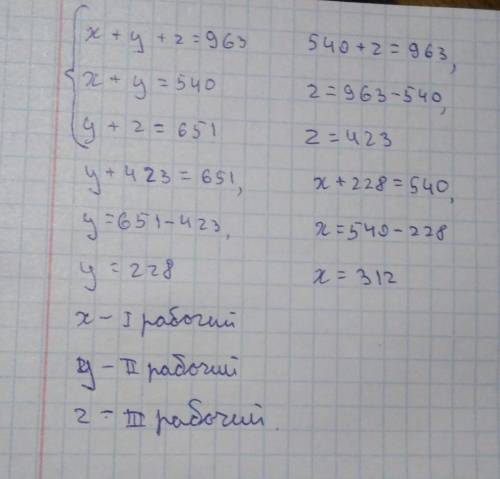 x + y + z = 963
x + y = 540
y + z = 651
540 + z = 963,
z = 963 - 540,
z = 423
y + 423 = 651,
y = 651 - 423,
y = 228
x + 228 = 540,
x = 540 - 228
x = 312
x - I рабочий
y - II рабочий
z - III рабочий.